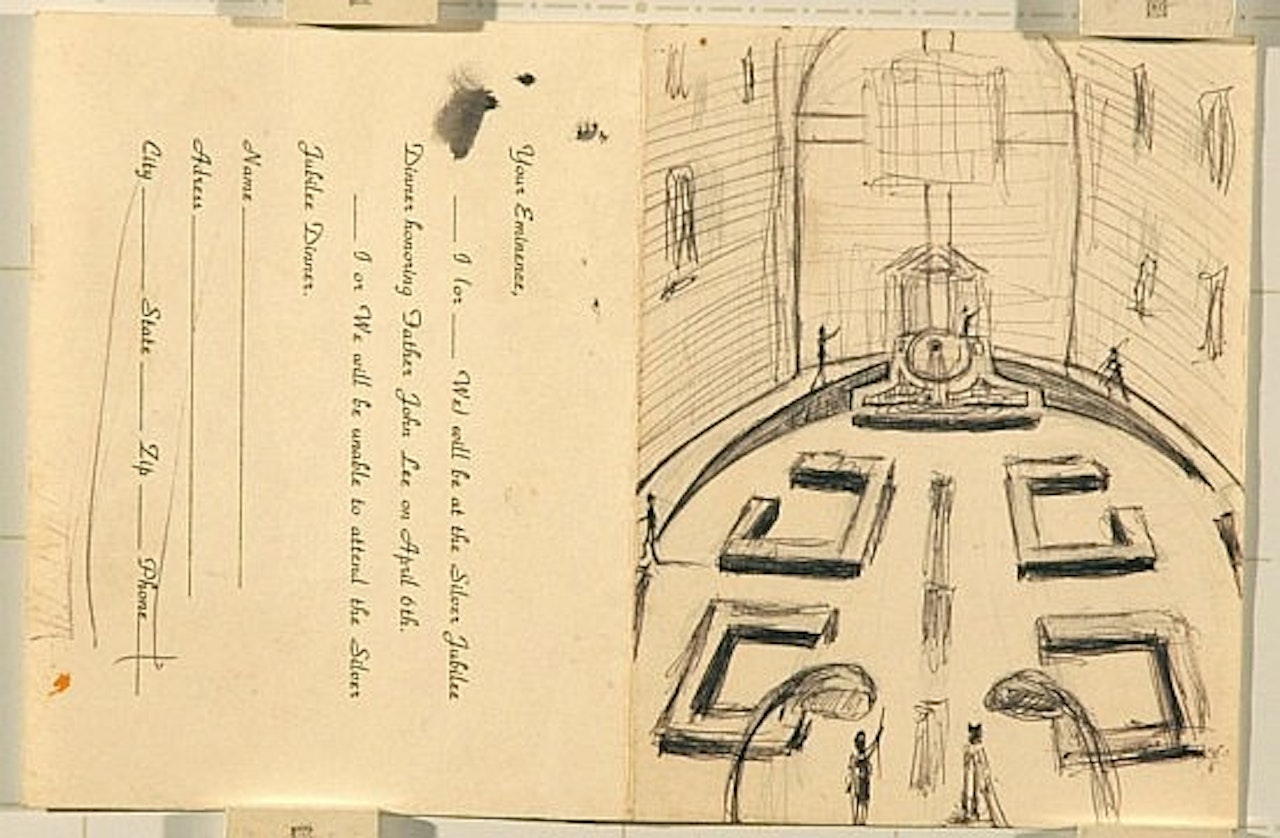 Your Eminence,
___ I (or ___ We) will be at the Silver Jubilee
Dinner honoring Father John Le on April 6th.
___ I or We will be unable to attend the Silver
Jubilee Dinner.
Name ___
Adress ___
City ___ State ___ Zip ___ Phone ___